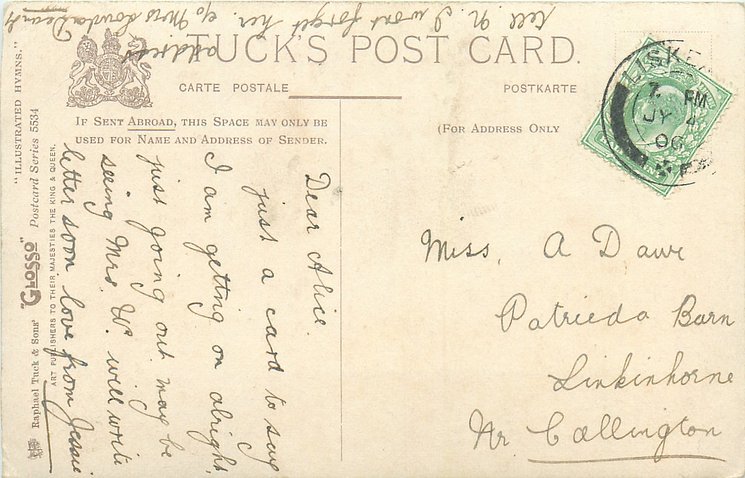 tell N. I wont forget her. c/o Mrs
address
TUCK'S POST CARD.
CARTE POSTALE
POSTKARTE
IF SENT ABROAD, THIS SPACE MAY ONLY BE
USED FOR NAME AND ADDRESS OF SENDER.
(FOR ADDRESS ONLY
"ILLUSTRATED HYMNS."
Raphael Tuck & Sons' "GLOSSO" Postcard Series 5534
ART PUBLISHERS TO THEIR MAJESTIES THE KING & QUEEN.
LISKEA
7. PM
JY 4
06
Dear Alice.
just a card to say
I am getting on alright,
just going out may be
seeing Mrs. W. will write
letter soon love from Jessie
Miss. A Dawe
Patrieda Barn
Linkinhorne
Nr. Callington